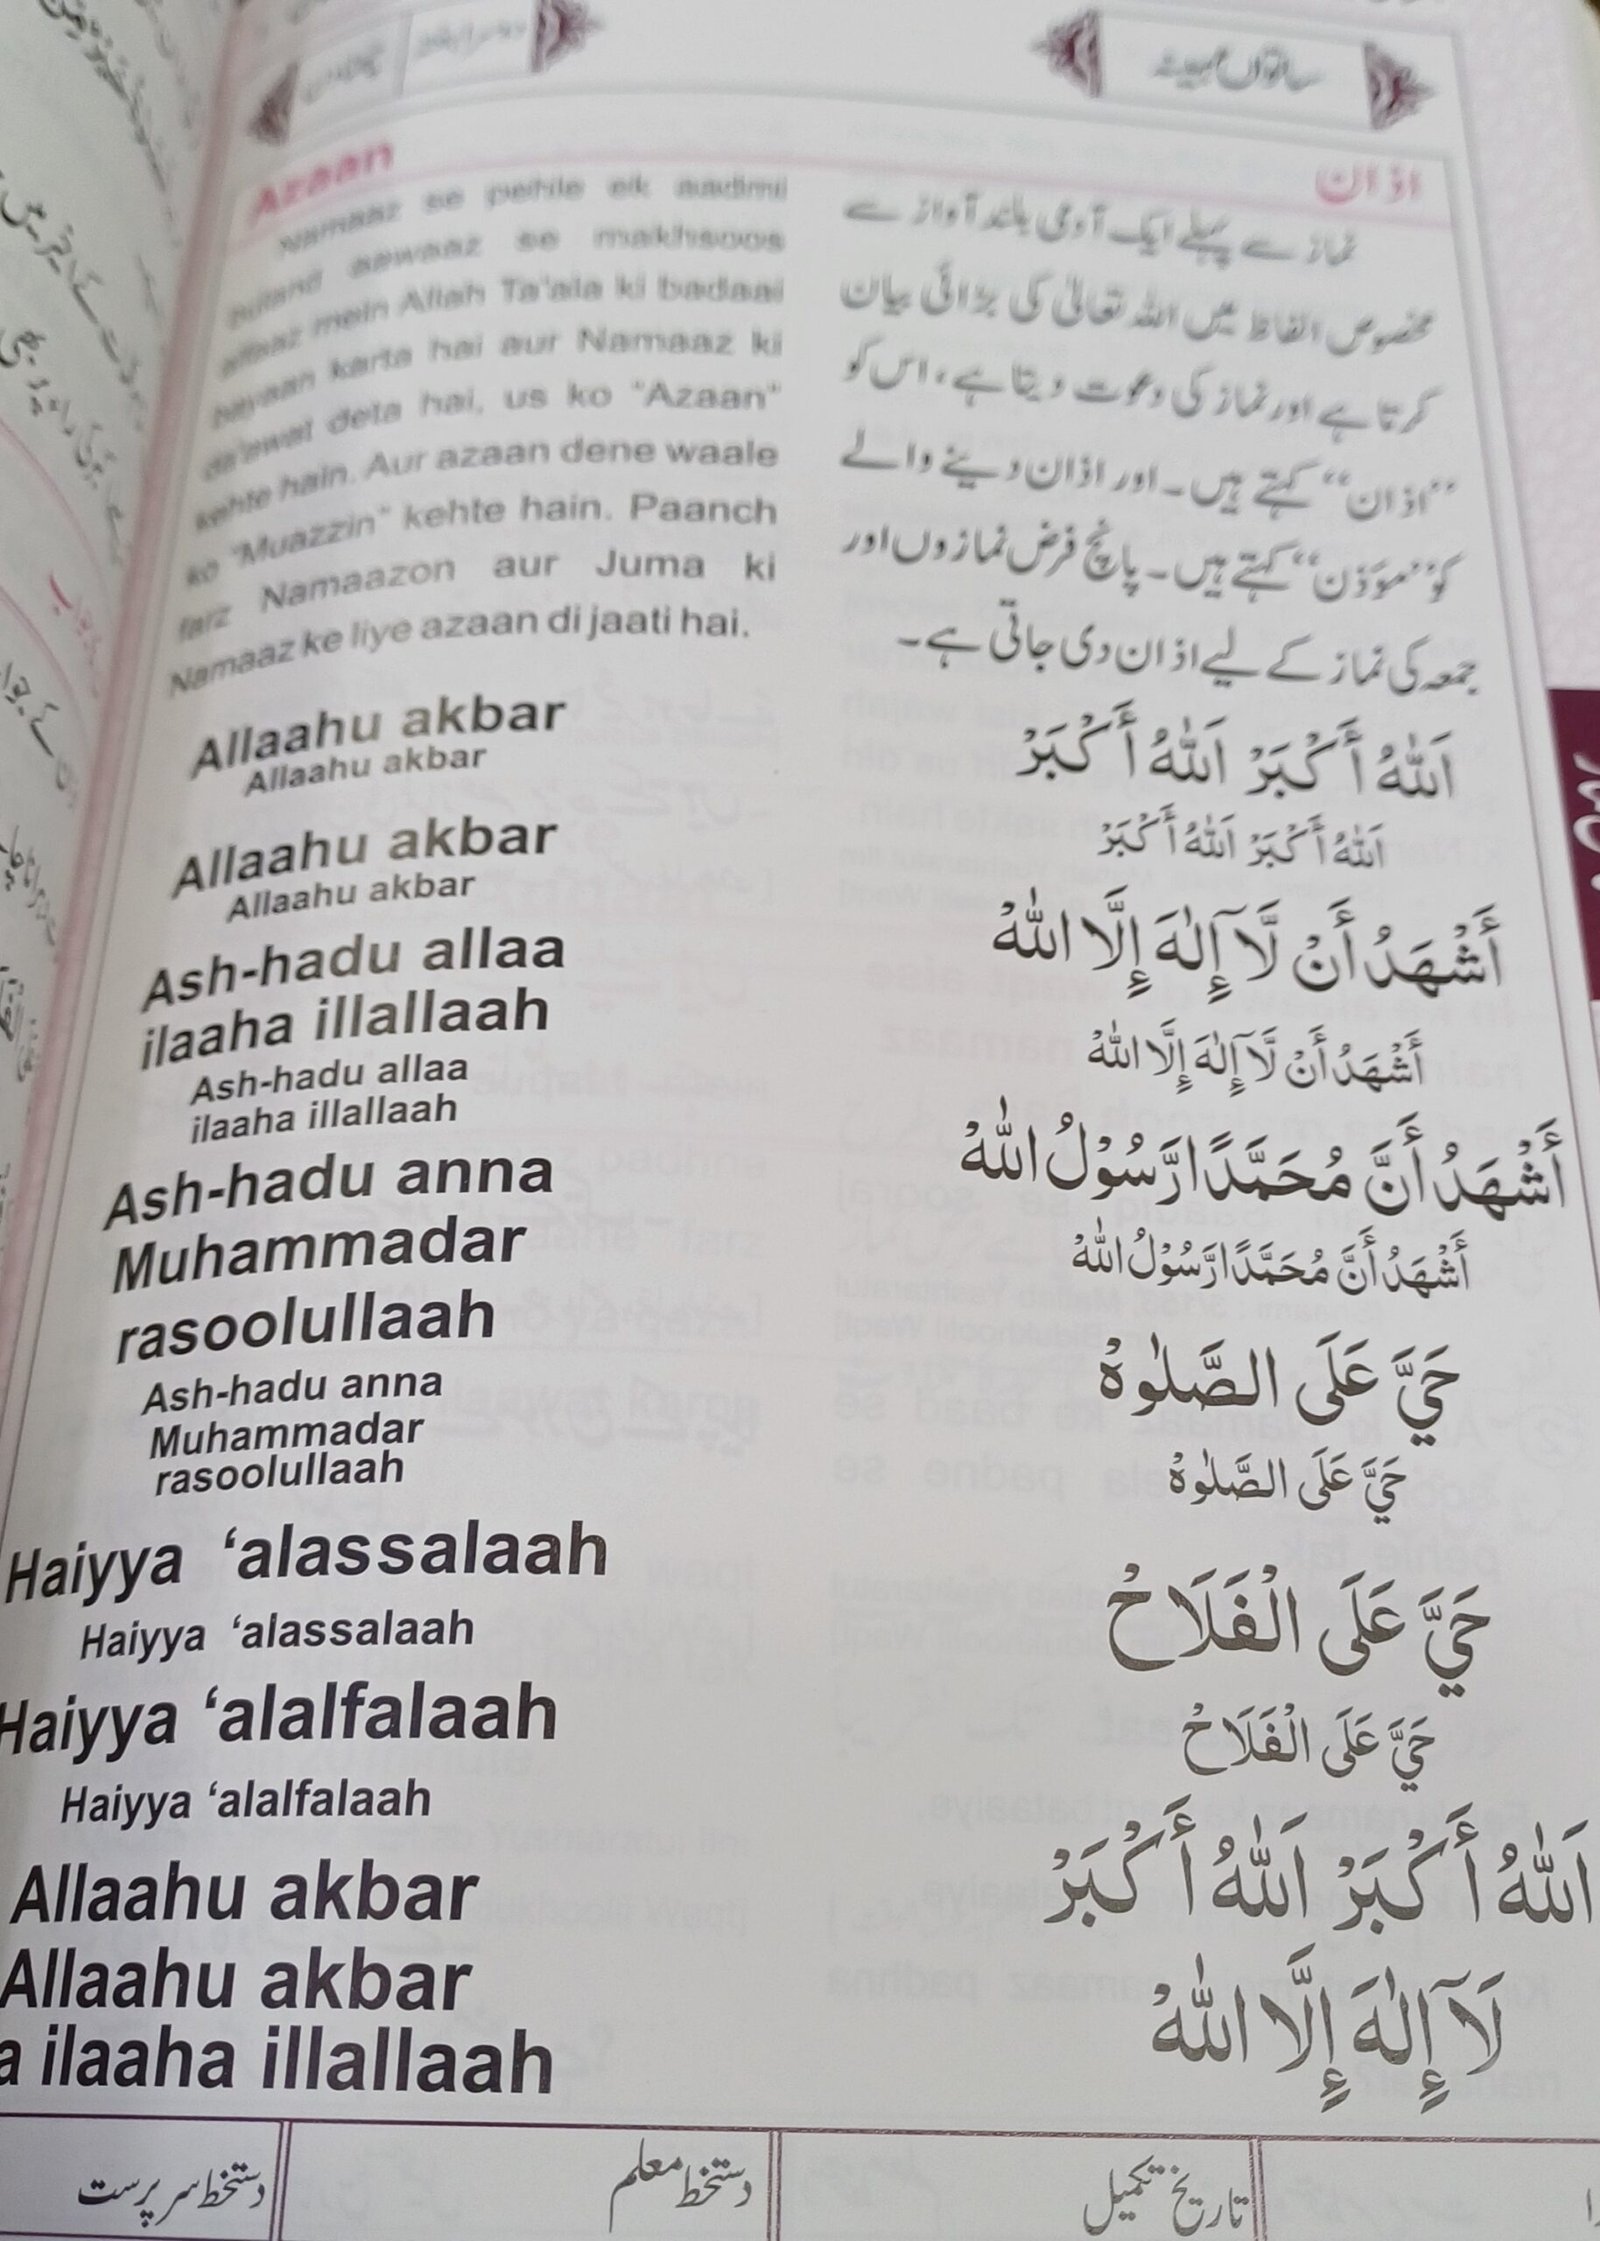 ساتواں مہینہ
Azaan
Namaaz se pehle eik aadmi
buland aawaaz se makhsoos
alfaaz mein Allah Ta'ala ki badaai
bayaan karta hai aur Namaaz ki
da'ewat deta hai, us ko "Azaan"
kehte hain. Aur azaan dene waale
ko "Muazzin" kehte hain. Paanch
farz Namaazon aur Juma ki
Namaaz ke liye azaan di jaati hai.
Allaahu akbar
Allaahu akbar
Allaahu akbar
Allaahu akbar
Ash-hadu allaa
ilaaha illallaah
Ash-hadu allaa
ilaaha illallaah
Ash-hadu anna
Muhammadar
rasoolullaah
Ash-hadu anna
Muhammadar
rasoolullaah
Haiyya ‘alassalaah
Haiyya ‘alassalaah
Haiyya ‘alalfalaah
Haiyya ‘alalfalaah
Allaahu akbar
Allaahu akbar
a ilaaha illallaah
اذان
نماز سے پہلے ایک آدمی بلند آواز سے
مخصوص الفاظ میں اللہ تعالیٰ کی بڑائی بیان
کرتا ہے اور نماز کی دعوت دیتا ہے، اس کو
”اذان“ کہتے ہیں۔ اور اذان دینے والے
کو ”مؤذن“ کہتے ہیں۔ پانچ فرض نمازوں اور
جمعہ کی نماز کے لیے اذان دی جاتی ہے۔
اَللّٰهُ أَكْبَرْ اَللّٰهُ أَكْبَرْ
اَللّٰهُ أَكْبَرْ اَللّٰهُ أَكْبَرْ
أَشْهَدُ أَنْ لَّآ إِلٰهَ إِلَّا اللّٰهْ
أَشْهَدُ أَنْ لَّآ إِلٰهَ إِلَّا اللّٰهْ
أَشْهَدُ أَنَّ مُحَمَّدًا رَّسُوْلُ اللّٰهْ
أَشْهَدُ أَنَّ مُحَمَّدًا رَّسُوْلُ اللّٰهْ
حَيَّ عَلَى الصَّلٰوةْ
حَيَّ عَلَى الصَّلٰوةْ
حَيَّ عَلَى الْفَلَاحْ
حَيَّ عَلَى الْفَلَاحْ
اَللّٰهُ أَكْبَرْ اَللّٰهُ أَكْبَرْ
لَآ إِلٰهَ إِلَّا اللّٰهْ
تاریخ تکمیل
دستخط معلم
دستخط سرپرست